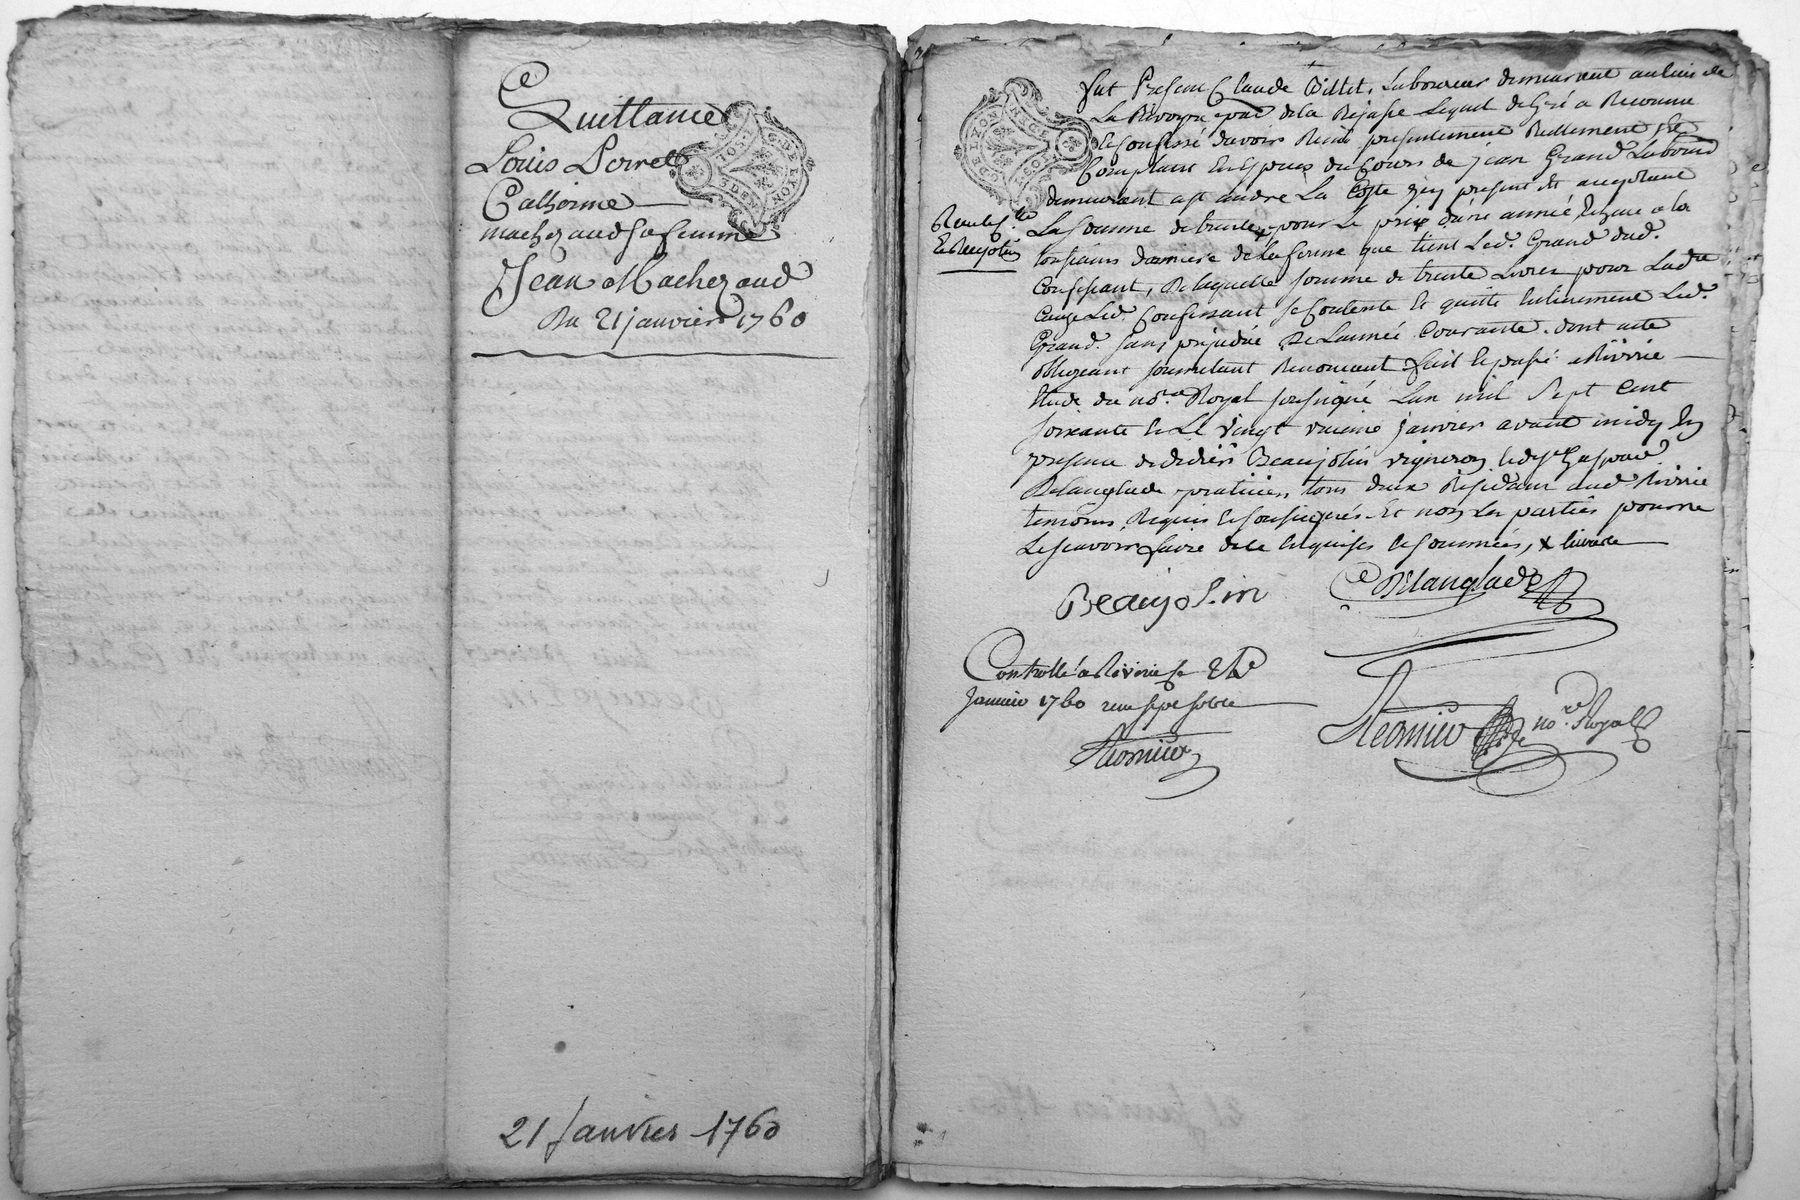 Quittance
Louis Perret
Catherine
machezaud sa femme
Jean Machezaud
Du 21 janvier 1760
21 Janvier 1760
fut Present Claude Billet, Laboureur demeurant au lieu de
La Revoyre par. de la Rejasse Lequel de Gré a Reconnu
et Confessé davoir Receu presentement Reellement et
Comptant en Especes du Cours de jean Grand Laboureur
demeurant a st andre La Coste icy present et acceptant
La somme de trente x pour Le prix d'une année Echue a la
toussains derniere de la ferme que tient Led. Grand dud.
Confessant, De laquelle somme de trente Livres pour Ladte
Cauze Led. Confessant se Contente et quitte Entierement Led.
Grand. sans prejudice De Lannée Courante. dont acte
obligeant soumettant Renonceant fait et passé a Riverie
Etude du nore Royal soussigné Lan mil Sept Cent
soixante et Le vingt unieme janvier avant midy En
presence de didier Beaujolin vigneron et de sr Gaspard
Delanglade praticien tous deux Residant aud. Riverie
temoins Requis et soussignés Et non Les parties pour ne
Le scavoir faire de ce Enquises et sommées, x livres
Beaujolin
Delanglade
Controllé a Riverie le 21e
Janvier 1760 receu sept sols
nore Royal